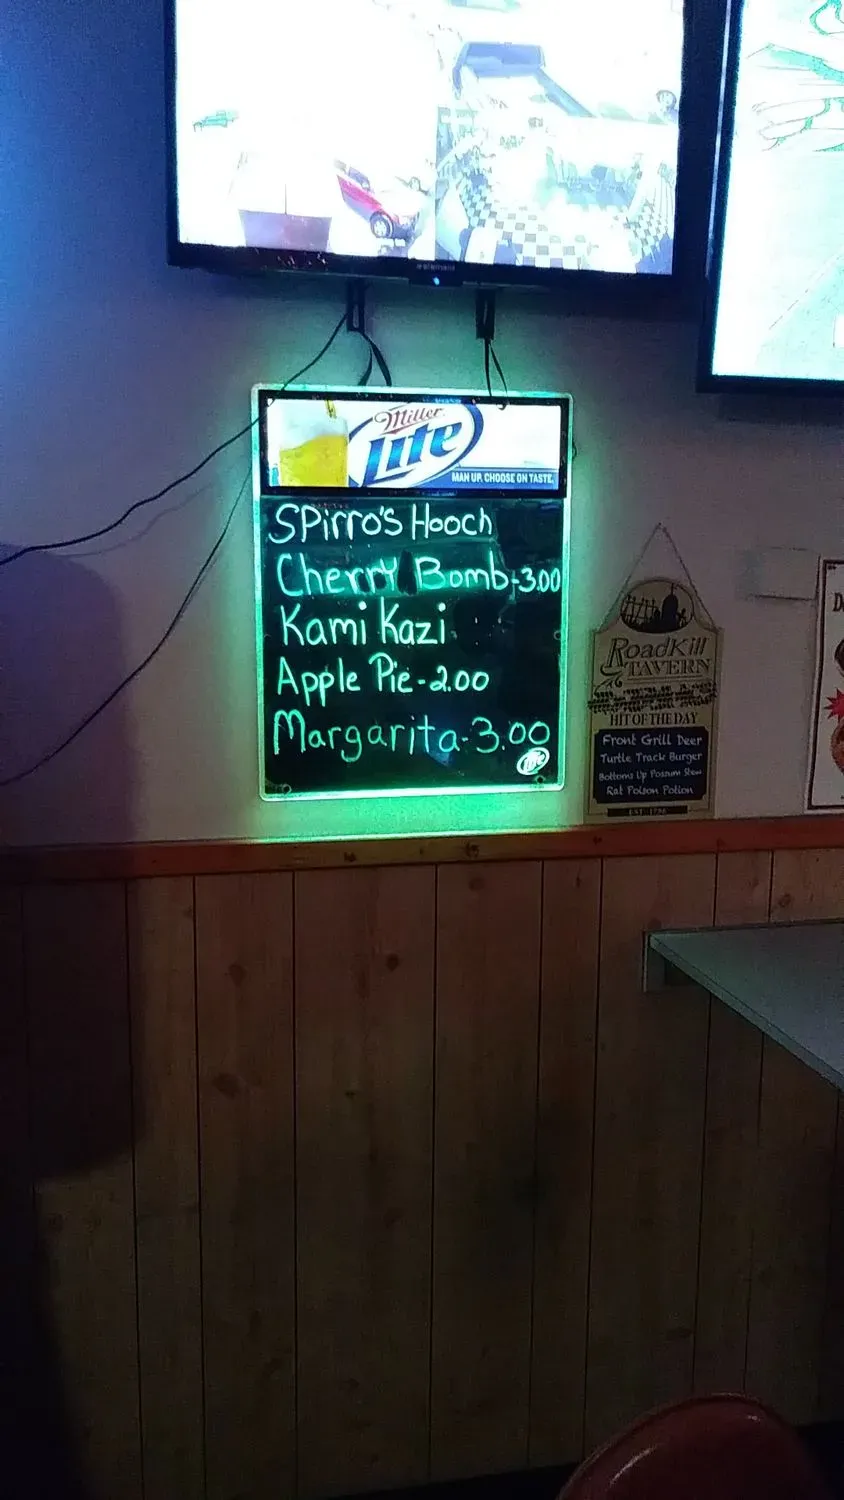 element
Miller
Lite
MAN UP. CHOOSE ON TASTE.
SPirro's Hooch
Cherry Bomb-3.00
Kami Kazi
Apple Pie-2.00
Margarita-3.00
Lite
RoadKill
TAVERN
HIT OF THE DAY
Front Grill Deer
Turtle Track Burger
Bottoms Up Possum Stew
Rat Poison Potion
EST. 1796